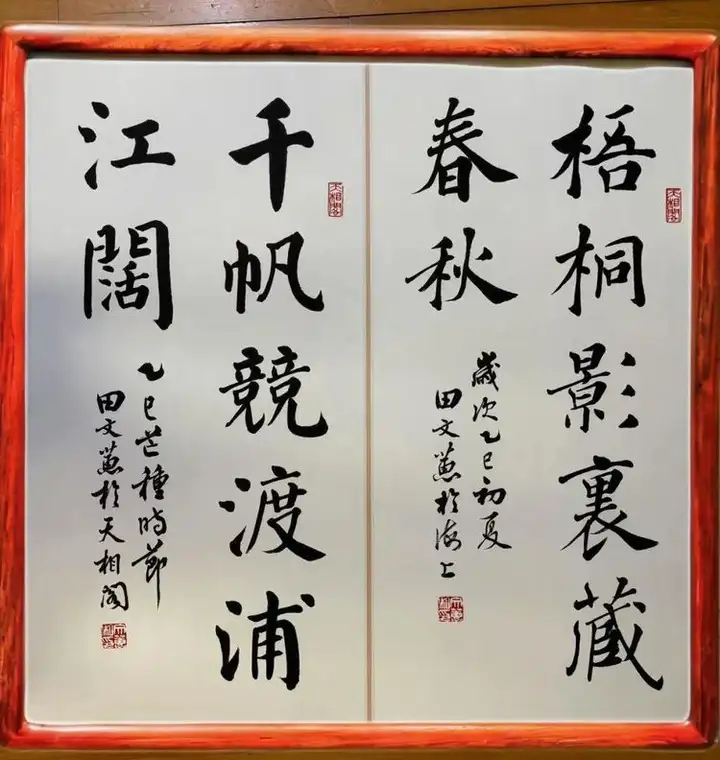 梧桐影裏藏
春秋
歲次乙巳初夏
田文蕙於海上
千帆競渡浦
江闊
乙巳芒種時節
田文蕙於天相閣
天相閣
天相閣